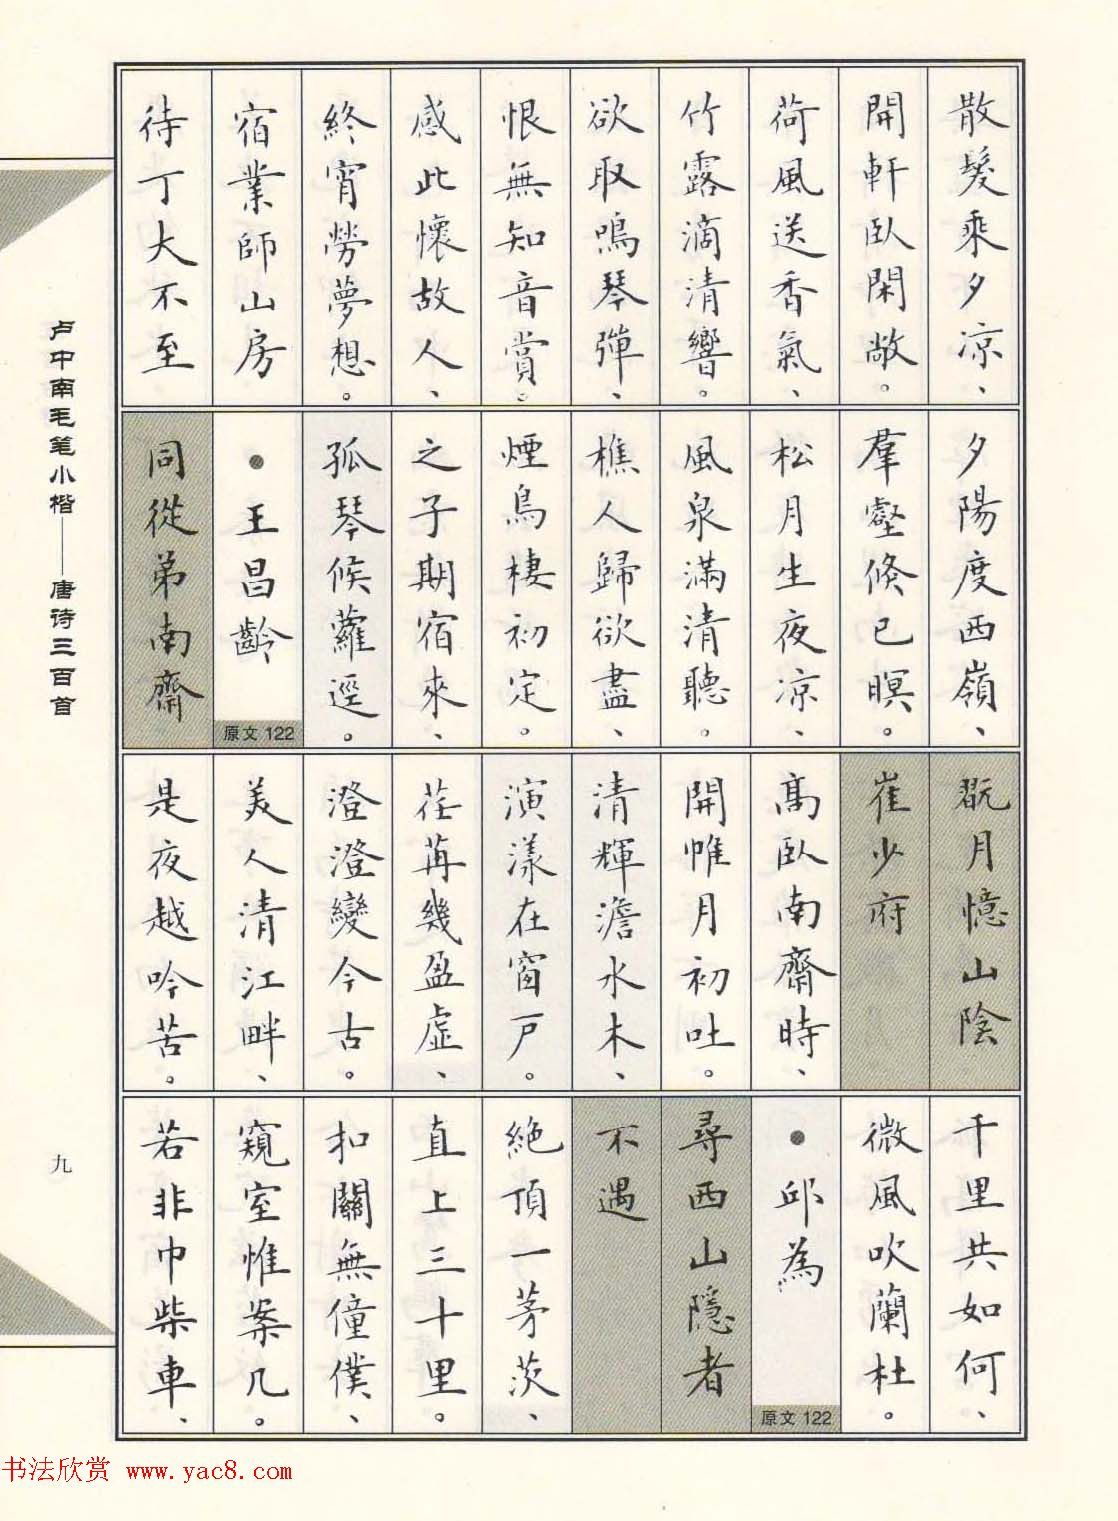 散髮乘夕凉、
開軒臥閑敞。
荷風送香氣、
竹露滴清響。
欲取鳴琴彈、
恨無知音賞。
感此懷故人、
終宵勞夢想。
宿業師山房
待丁大不至
夕陽度西嶺、
羣壑倏已暝。
松月生夜凉、
風泉滿清聽。
樵人歸欲盡、
煙鳥棲初定。
之子期宿來、
孤琴候蘿逕。
●王昌齡
原文 122
同從弟南齋
翫月憶山陰
崔少府
高臥南齋時、
開帷月初吐。
清輝澹水木、
演漾在窗戶。
荏苒幾盈虛、
澄澄變今古。
美人清江畔、
是夜越吟苦。
千里共如何、
微風吹蘭杜。
●邱為
原文 122
尋西山隱者
不遇
絶頂一茅茨、
直上三十里。
扣關無僮僕、
窺室惟案几。
若非巾柴車、
卢中南毛笔小楷——唐诗三百首
九
书法欣赏 www.yac8.com